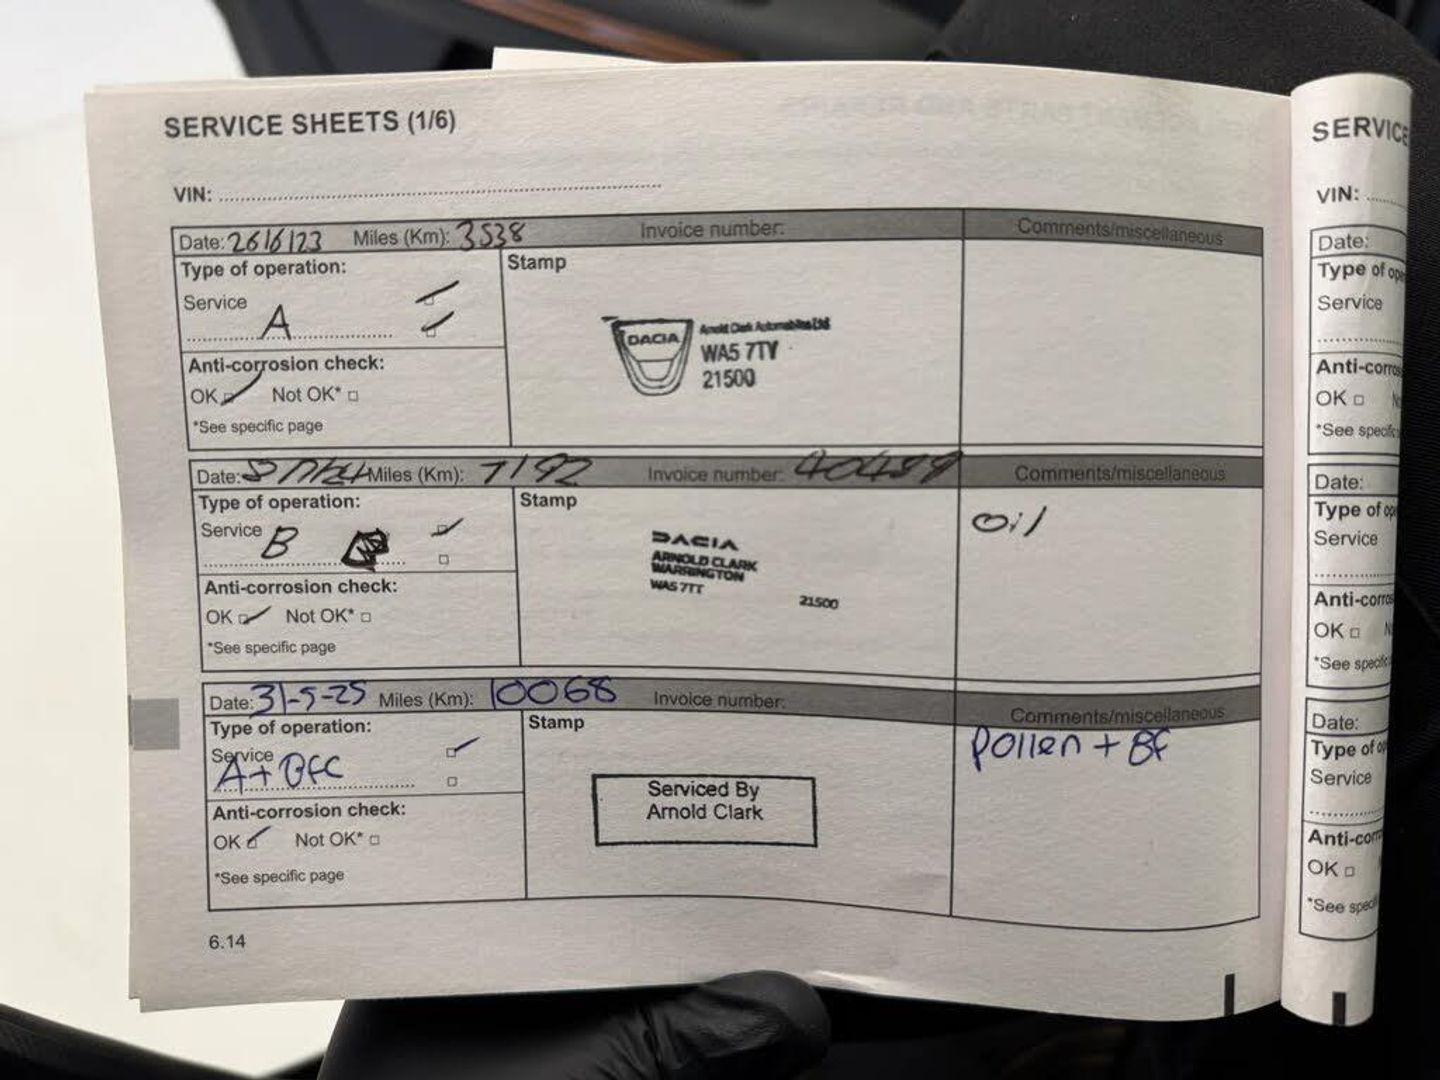 SERVICE SHEETS (1/6)
VIN:
Date: 26/6/23 Miles (Km): 3538 Invoice number: Comments/miscellaneous
Type of operation: Stamp
Service
A
DACIA
Arnold Clark Automobiles Ltd
WA5 7TY
21500
Anti-corrosion check:
OK Not OK*
*See specific page
Date: Miles (Km): 7192 Invoice number: 40489 Comments/miscellaneous
Type of operation: Stamp
Service B
oil
DACIA
ARNOLD CLARK
WARRINGTON
WA5 7TT 21500
Anti-corrosion check:
OK Not OK*
*See specific page
Date: 31-5-25 Miles (Km): 10068 Invoice number: Comments/miscellaneous
Type of operation: Stamp
Service
A+ BFC
pollen + BF
Serviced By
Arnold Clark
Anti-corrosion check:
OK Not OK*
*See specific page
6.14
SERVICE
VIN:
Date:
Type of
Service
OK
*See
Date:
Type of
Service
OK
*See
Date:
Type of
Service
OK
*See